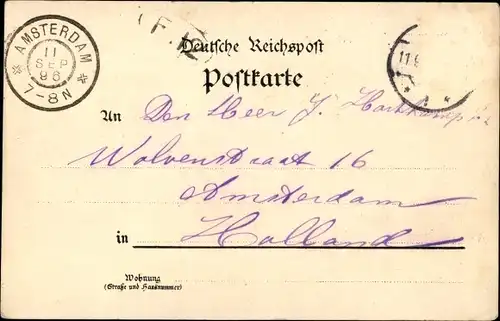 AMSTERDAM
11
SEP
96
7-8N
Deutsche Reichspost
Postkarte
An Den Heer J.
Wolvenstraat 16
Amsterdam
in Holland
Wohnung
(Straße und Hausnummer)